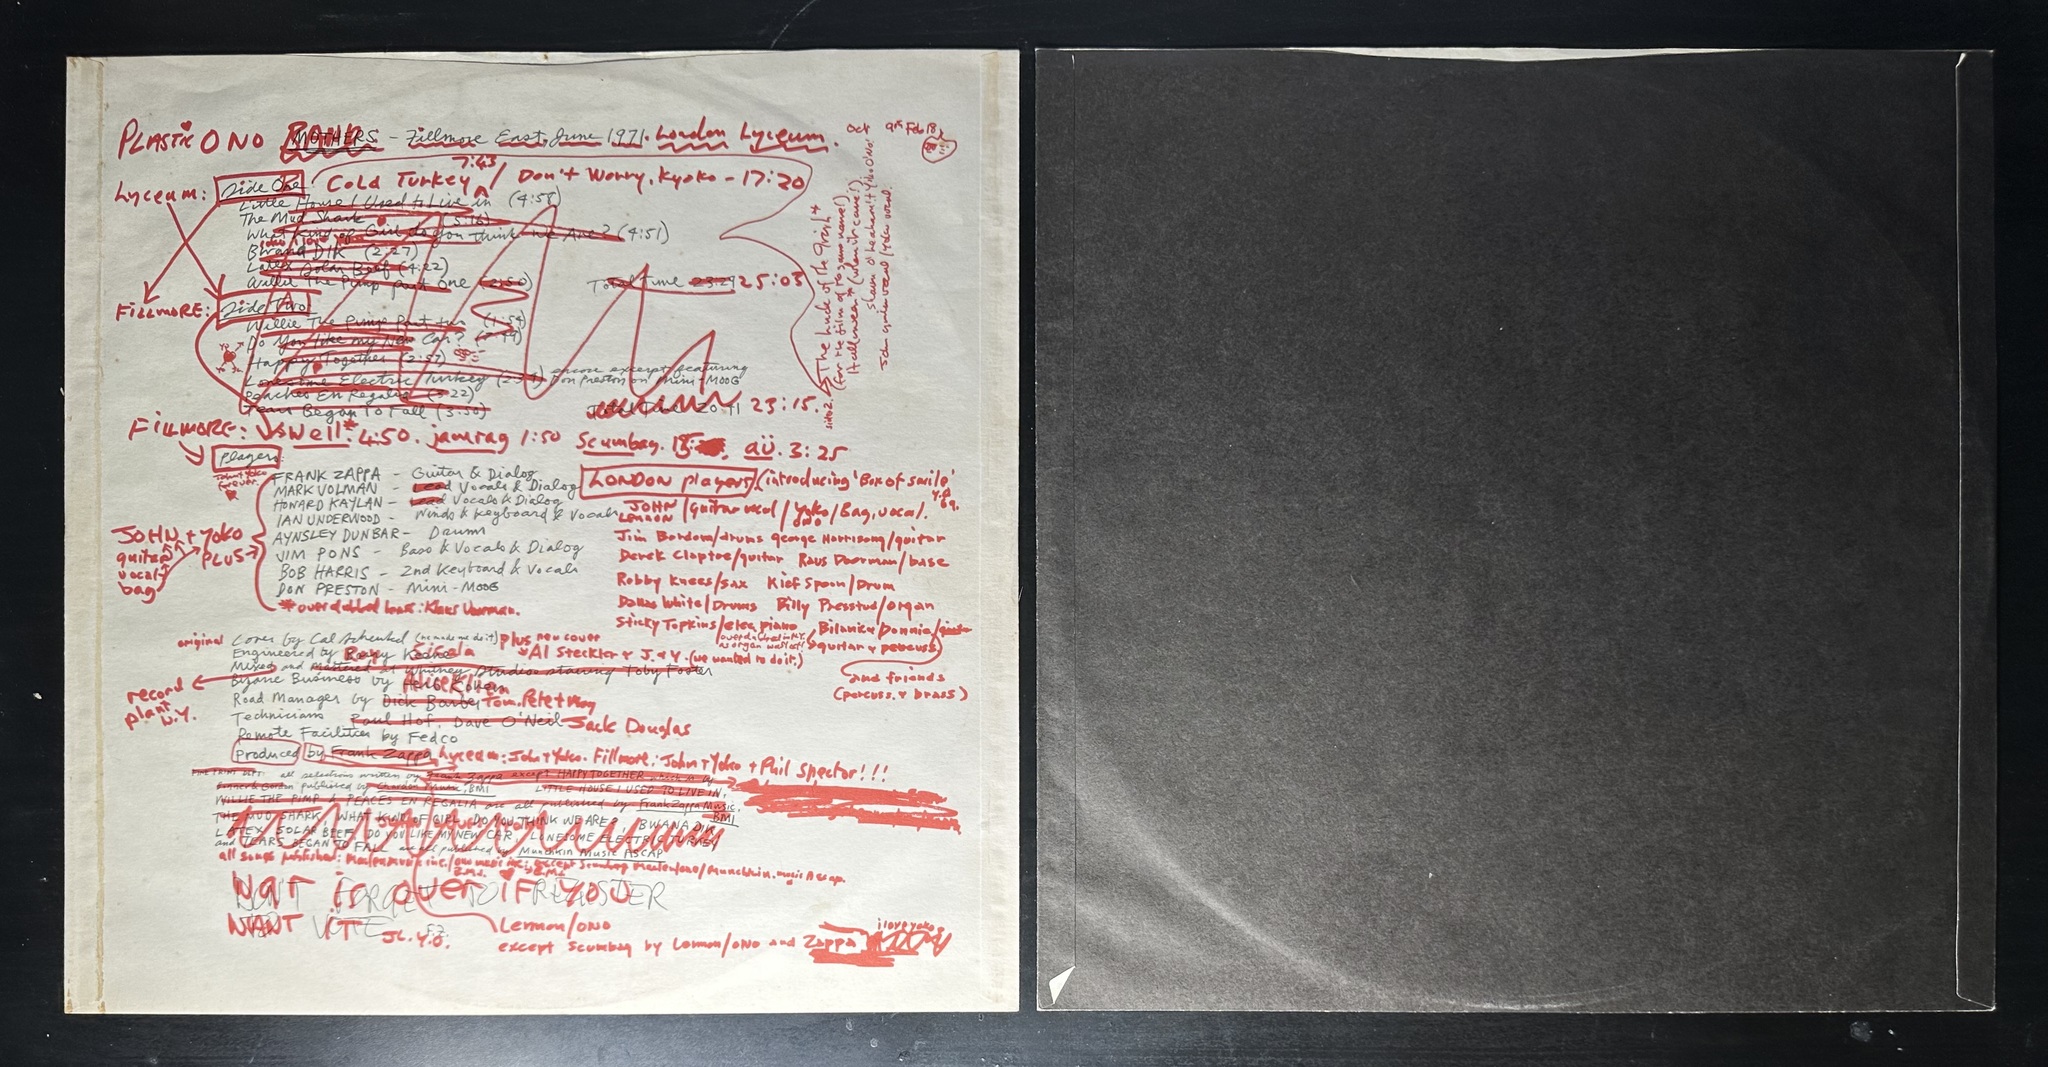 PLASTIC ONO BAND MOTHERS - Fillmore East, June 1971. London Lyceum.
Oct 9th Feb 18
Lyceum: Side One Cold Turkey 7:43 / Don't Worry, Kyoko - 17:20
Little House I Used to Live in (4:58)
The Mud Shark (5:16)
What Kind of Girl do you think we Are? (4:51)
Bwana Dik (2:27)
Latex Solar Beef (4:22)
Willie The Pimp Part One (2:50)
Total Time 23:29 25:03
Fillmore: Side Two
Willie The Pimp Part two (1:54)
Do You like my New Car?
Happy Together (2:57)
Lonesome Electric Turkey encore excerpt featuring
Don Preston on Mini-MOOG
Peaches En Regalia (3:22)
Tears Began To Fall (3:50)
Total Time 20:41 23:15.
side 2.
(for the film of same name!)
John
Fillmore: Well* 4:50. jamrag 1:50 Scumbag. aü. 3:25
Players:
John + Yoko forever
FRANK ZAPPA - Guitar & Dialog
MARK VOLMAN - Lead Vocals & Dialog
HOWARD KAYLAN - Lead Vocals & Dialog
IAN UNDERWOOD - Winds & Keyboard & Vocals
AYNSLEY DUNBAR - Drums
JIM PONS - Bass & Vocals & Dialog
BOB HARRIS - 2nd Keyboard & Vocals
DON PRESTON - Mini-MOOG
* overdubbed bass: Klaus Voorman.
JOHN + Yoko
guitar
vocals
bag
PLUS
LONDON players (introducing 'Box of smile' Y.O. 69.
JOHN LENNON / guitar vocal / Yoko ONO / Bag, vocal.
Jim Bordom/drums george Harrisong/guitar
Derek Claptoe/guitar Raus Doorman/base
Robby Knees/sax Kief Spoon/Drum
Dallas White/Drums Billy Presstud/organ
Sticky Topkins/elec piano Bilanie/Donnie/guitar
guitar & percuss
and friends
(percuss. & brass)
original Cover by Cal Schenkel (he made me do it) plus new cover
* Al Steckler & J. & Y. (we wanted to do it.)
Engineered by Barry Keene Roy Cicala
Mixed and mastered at Whitney Studios starring Toby Foster
record plant N.Y.
Bizarre Business by Herb Cohen
Road Manager by Dick Barber
Technicians Paul Hof, Dave O'Neil Jack Douglas
Remote Facilities by Fedco
Produced by Frank Zappa Lyceum: John + Yoko. Fillmore: John + Yoko + Phil Spector!!!
FINE PRINT DEPT: all selections written by Frank Zappa except HAPPY TOGETHER, written by
published by BMI LITTLE HOUSE I USED TO LIVE IN,
WILLIE THE PIMP & PEACES EN REGALIA are all published by Frank Zappa Music, BMI
THE MUD SHARK, WHAT KIND OF GIRL DO YOU THINK WE ARE?, BWANA DIK,
LATEX SOLAR BEEF, DO YOU LIKE MY NEW CAR, LONESOME ELECTRIC TURKEY
and TEARS BEGAN TO FALL are all published by Munchkin Music ASCAP
all songs published: Maclen music inc./ono music inc. except Scumbag Maclen/ono/Munchkin. music Ascap.
DON'T FORGET TO REGISTER
TO VOTE F.Z.
WAR is over IF YOU
WANT IT JL. Y.O.
Lennon/ONO
except scumbag by Lennon/ONO and Zappa
i love yoko